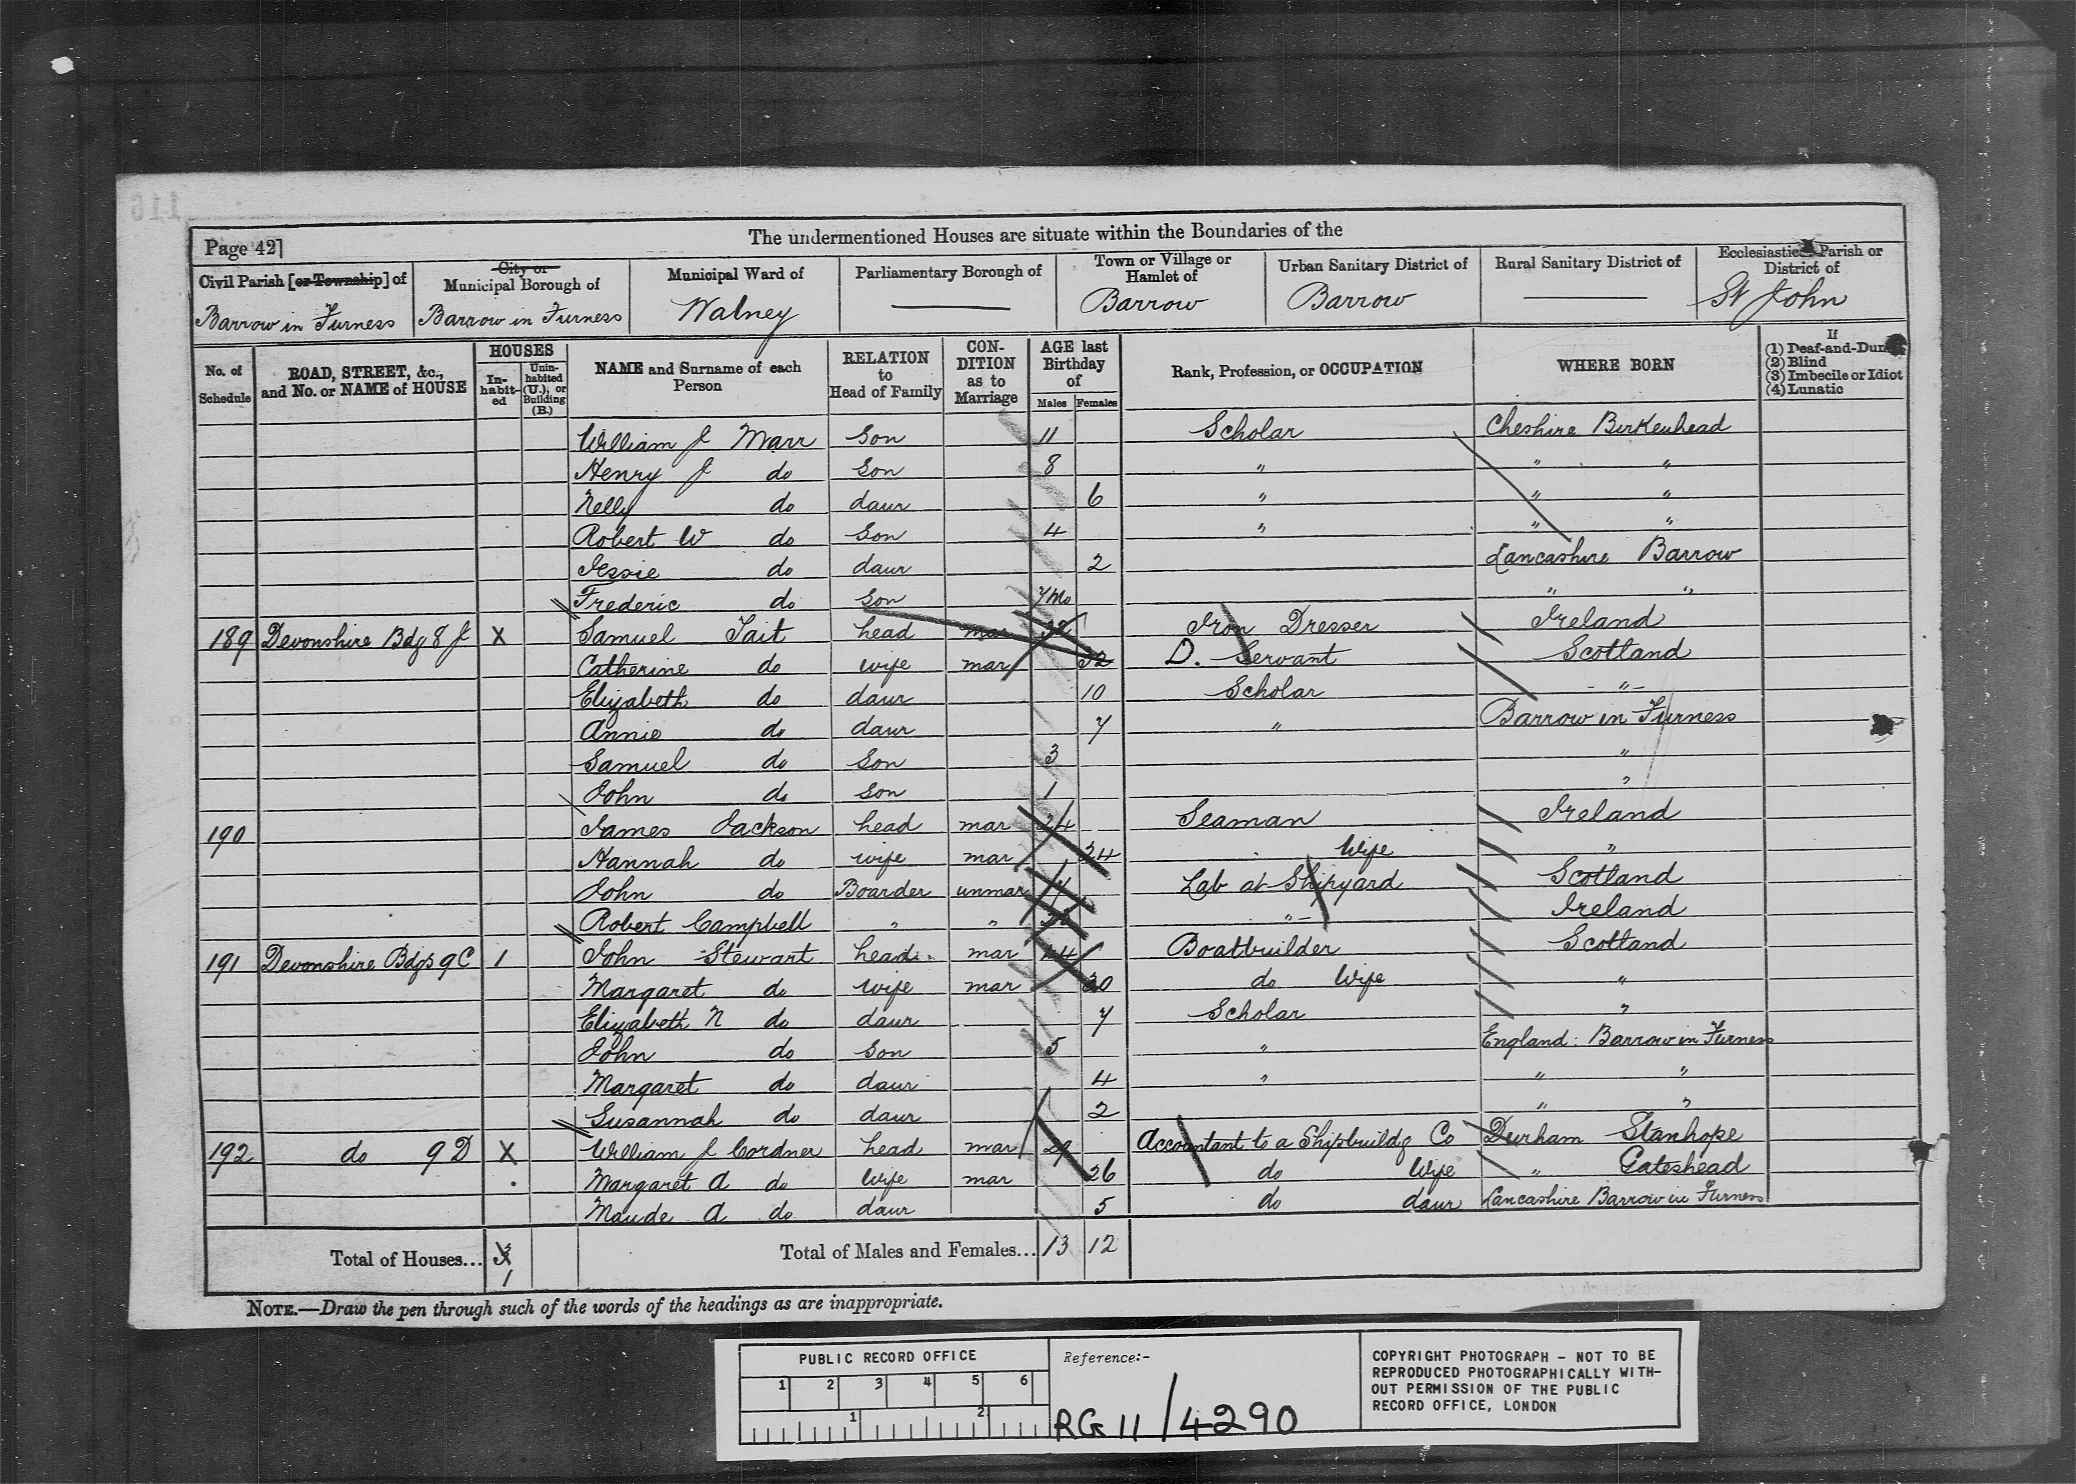 The undermentioned Houses are situate within the Boundaries of the
Page 42]
Civil Parish [or Township] of
City or Municipal Borough of
Municipal Ward of
Parliamentary Borough of
Town or Village or Hamlet of
Urban Sanitary District of
Rural Sanitary District of
Ecclesiastical Parish or District of
Barrow in Furness Barrow in Furness Walney — Barrow Barrow — St John
No. of Schedule
ROAD, STREET, &c., and No. or NAME of HOUSE
HOUSES
In-habit-ed
Unin-habited (U.), or Building (B.)
NAME and Surname of each Person
RELATION to Head of Family
CON-DITION as to Marriage
AGE last Birthday of
Males Females
Rank, Profession, or OCCUPATION
WHERE BORN
If
(1) Deaf-and-Dumb
(2) Blind
(3) Imbecile or Idiot
(4) Lunatic
William J Marr Son 11 Scholar Cheshire Birkenhead
Henry J do Son 8 " " "
Nelly do daur 6 " " "
Robert W do Son 4 " " "
Jessie do daur 2 Lancashire Barrow
Frederic do Son 7 Mo " "
189 Devonshire Bdg 8 J X Samuel Tait head mar Iron Dresser Ireland
Catherine do wife mar 32 D. Servant Scotland
Elizabeth do daur 10 Scholar - " -
Annie do daur 7 " Barrow in Furness
Samuel do Son 3 "
John do Son 1 "
190 James Jackson head mar 24 Seaman Ireland
Hannah do wife mar 24 Wife "
John do Boarder unmar Lab at Shipyard Scotland
Robert Campbell " " " Ireland
191 Devonshire Bdgs 9C 1 John Stewart head mar Boatbuilder Scotland
Margaret do wife mar 30 do Wife "
Elizabeth N do daur 7 Scholar "
John do Son 5 " England: Barrow in Furness
Margaret do daur 4 " " "
Susannah do daur 2 " "
192 do 9 D X William J Cordner head mar 29 Accountant to a Shipbuildg Co Durham Stanhope
Margaret A do Wife mar 26 do Wife " Gateshead
Maude A do daur 5 do daur Lancashire Barrow in Furness
Total of Houses... 3 1
Total of Males and Females... 13 12
NOTE.—Draw the pen through such of the words of the headings as are inappropriate.
PUBLIC RECORD OFFICE
1 2 3 4 5 6
1 2
Reference:-
RG 11/4290
COPYRIGHT PHOTOGRAPH - NOT TO BE
REPRODUCED PHOTOGRAPHICALLY WITH-
OUT PERMISSION OF THE PUBLIC
RECORD OFFICE, LONDON